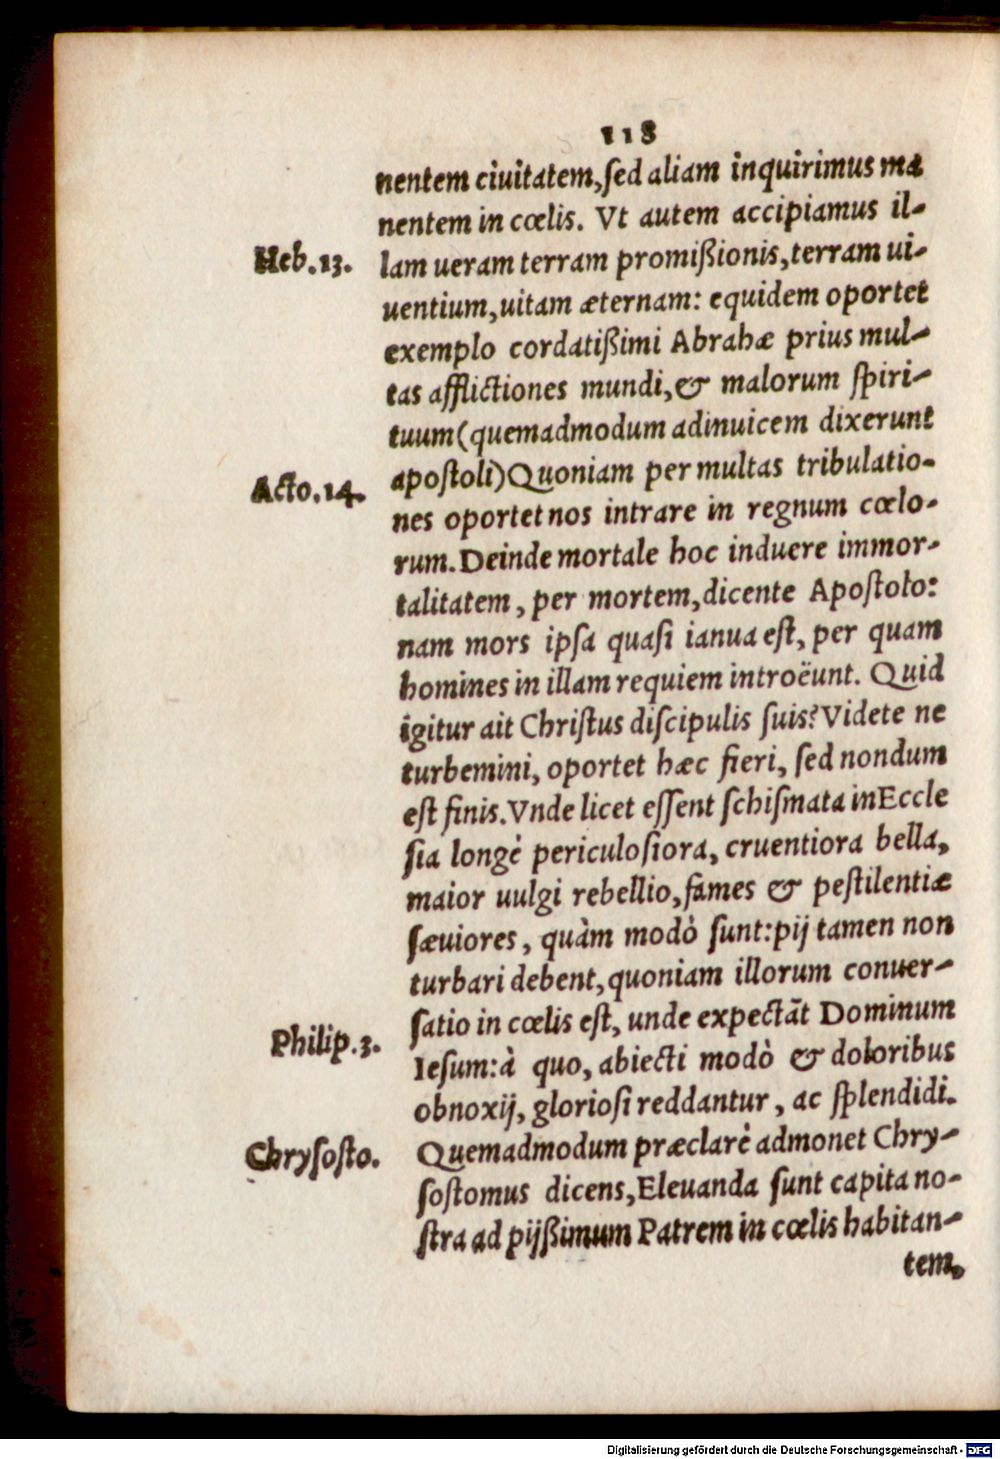 118
nentem ciuitatem, ſed aliam inquirimus ma
nentem in cœlis. Vt autem accipiamus il-
Heb.13. lam ueram terram promißionis, terram ui-
uentium, uitam æternam: equidem oportet
exemplo cordatißimi Abrahæ prius mul-
tas afflictiones mundi, & malorum ſpiri-
tuum (quemadmodum adinuicem dixerunt
Acto.14. apoſtoli) Quoniam per multas tribulatio-
nes oportet nos intrare in regnum cœlo-
rum. Deinde mortale hoc induere immor-
talitatem, per mortem, dicente Apoſtolo:
nam mors ipſa quaſi ianua eſt, per quam
homines in illam requiem introëunt. Quid
igitur ait Chriſtus diſcipulis ſuis? Videte ne
turbemini, oportet hæc fieri, ſed nondum
eſt finis. Vnde licet eſſent ſchiſmata in Eccle
ſia longè periculoſiora, cruentiora bella,
maior uulgi rebellio, fames & peſtilentiæ
ſæuiores, quàm modò ſunt: pij tamen non
turbari debent, quoniam illorum conuer-
ſatio in cœlis eſt, unde expectāt Dominum
Philip.3. Ieſum: à quo, abiecti modò & doloribus
obnoxij, glorioſi reddantur, ac ſplendidi.
Chryſoſto. Quemadmodum præclarè admonet Chry-
ſoſtomus dicens, Eleuanda ſunt capita no-
ſtra ad pijßimum Patrem in cœlis habitan-
tem.
Digitalisierung gefördert durch die Deutsche Forschungsgemeinschaft - DFG